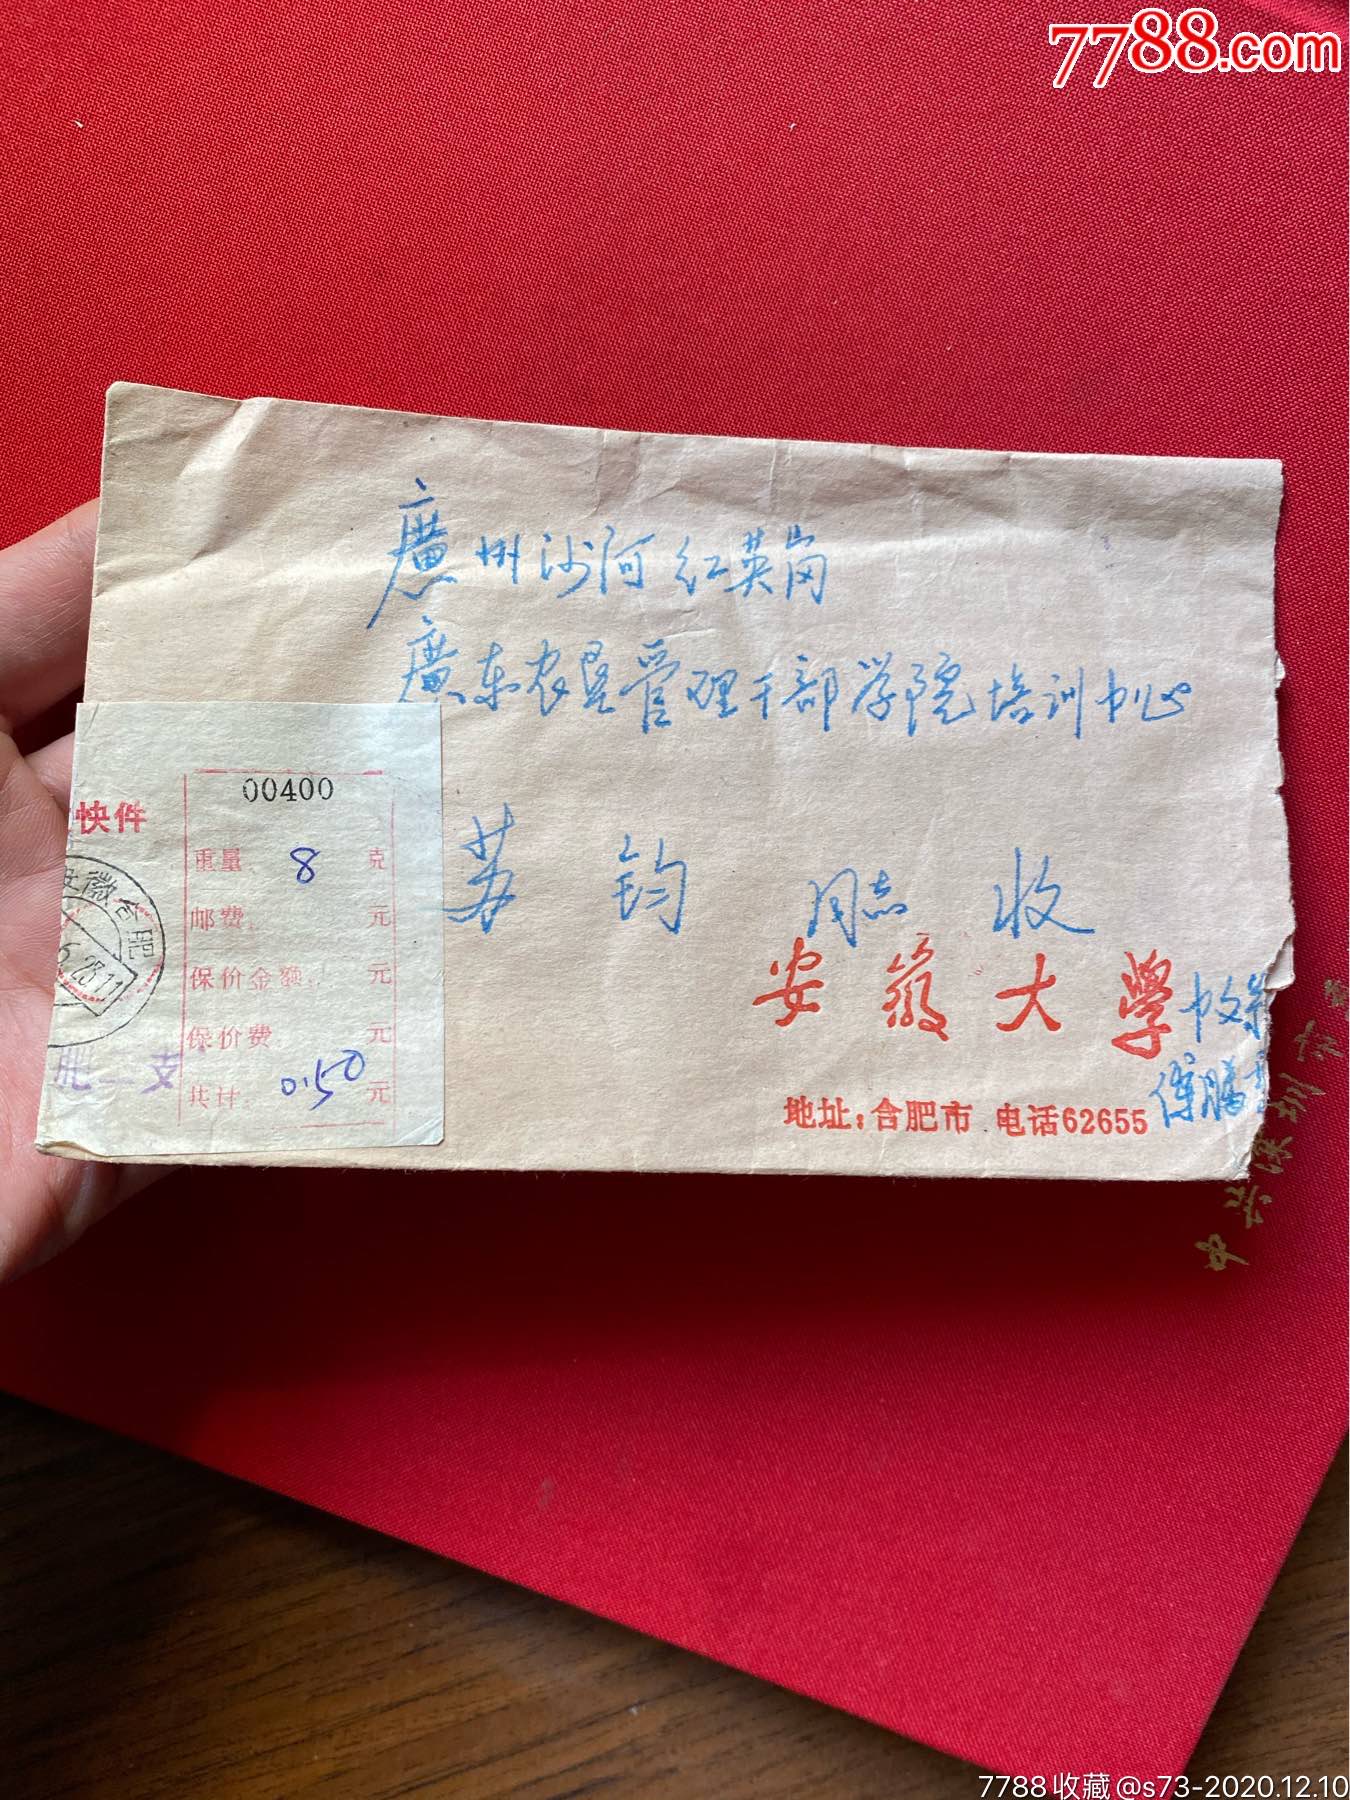 7788.com
廣州沙河红英岗
廣东农垦管理干部学院培训中心
苏钧同志收
安徽大学
地址:合肥市 电话62655
傅腾
00400
快件
重量 8 克
邮费 元
保价金额 元
保价费 元
共计 0.50 元
安徽合肥
23.11
肥二支
7788收藏@s73-2020.12.10